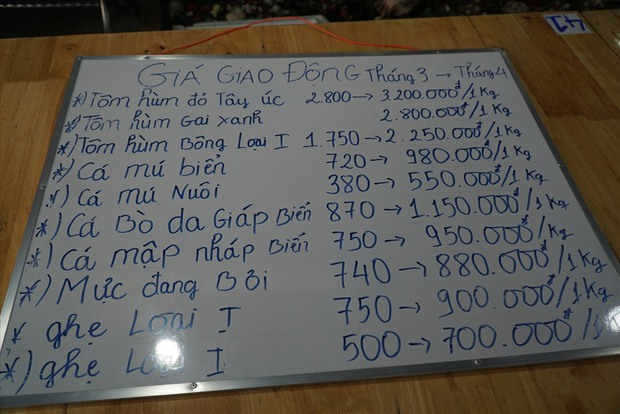 GIÁ GIAO ĐỘNG Tháng 3 → Tháng 4
*) Tôm hùm đỏ Tây úc 2.800 → 3.200.000đ/1 Kg
*) Tôm hùm Gai xanh 2.800.000đ/1 Kg
*) Tôm hùm Bông Loại I 1.750 → 2.250.000đ/1 Kg
*) Cá mú biển 720 → 980.000đ/1 Kg
*) Cá mú Nuôi 380 → 550.000đ/1 Kg
*) Cá Bò da Giáp Biển 870 → 1.150.000đ/1 Kg
*) Cá mập nháp Biển 750 → 950.000đ/1 Kg
*) Mực đang Bơi 740 → 880.000đ/1 Kg
* ghẹ Loại I 750 → 900.000đ/1 Kg
*) ghẹ Loại I 500 → 700.000đ/1
41